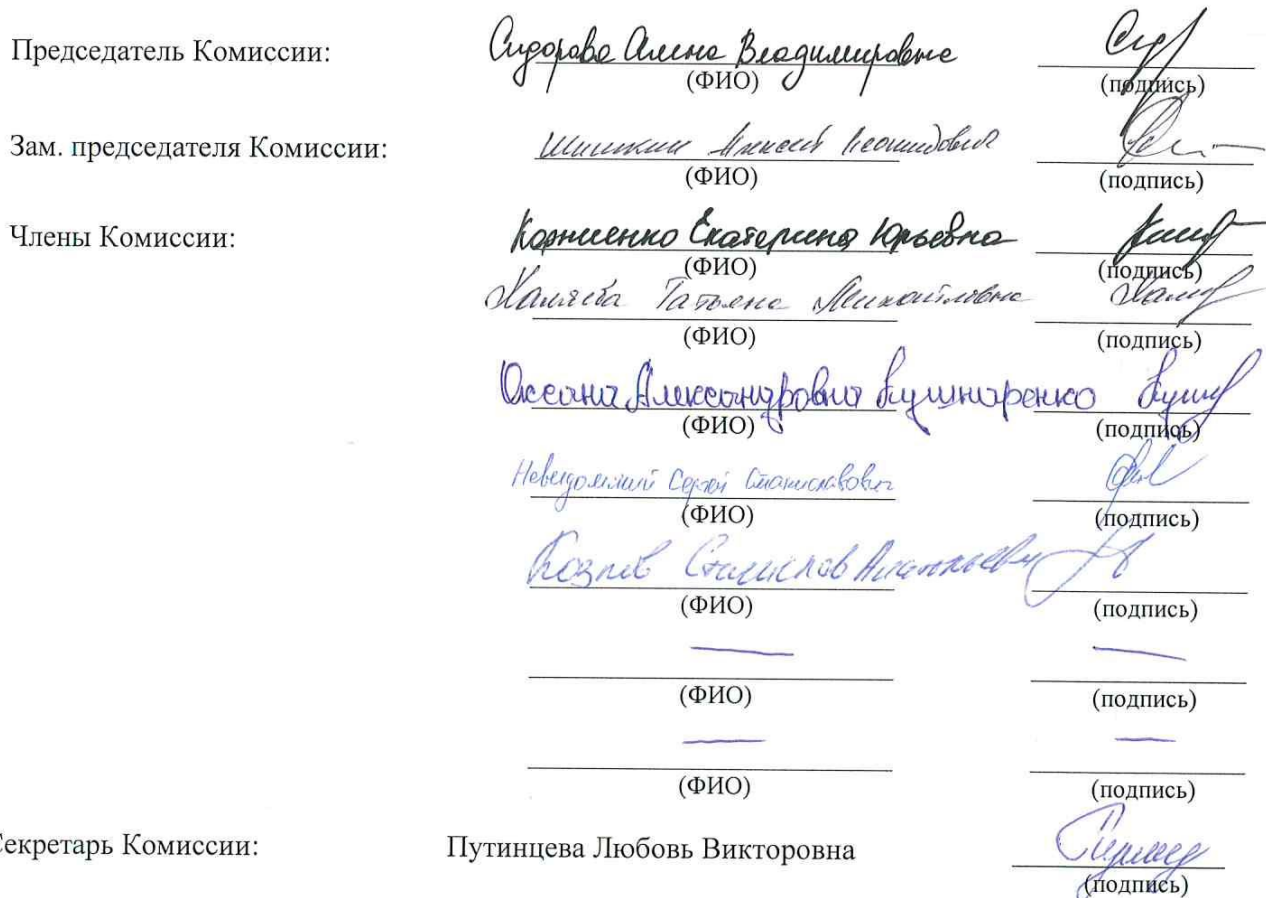 Председатель Комиссии: Сидорова Алена Владимировна
(ФИО) (подпись)
Зам. председателя Комиссии: Шишкин Алексей Леонидович
(ФИО) (подпись)
Члены Комиссии: Корниенко Екатерина Юрьевна
(ФИО) (подпись)
Татьяна Михайловна
(ФИО) (подпись)
Оксана Александровна Кушнаренко
(ФИО) (подпись)
Невидомский Сергей Станиславович
(ФИО) (подпись)
Козлов Станислав Анатольевич
(ФИО) (подпись)
(ФИО) (подпись)
(ФИО) (подпись)
Секретарь Комиссии: Путинцева Любовь Викторовна
(подпись)